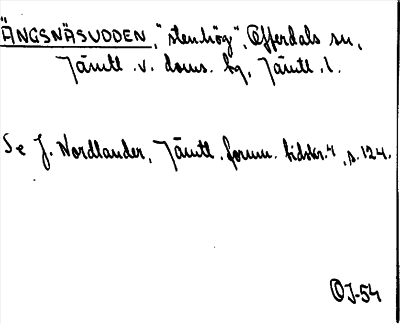 ÄNGSNÄSUDDEN, "stenhög", Offerdals sn,
Jämtl. v. doms. hg, Jämtl. l.
Se J. Nordlander, Jämtl. fornm. tidskr. 4, s. 124.
OJ-54